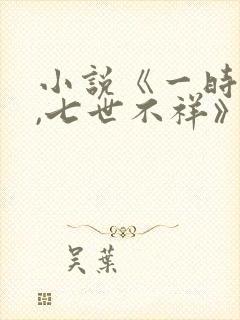 小説《一時
,七世不祥》
吴葉